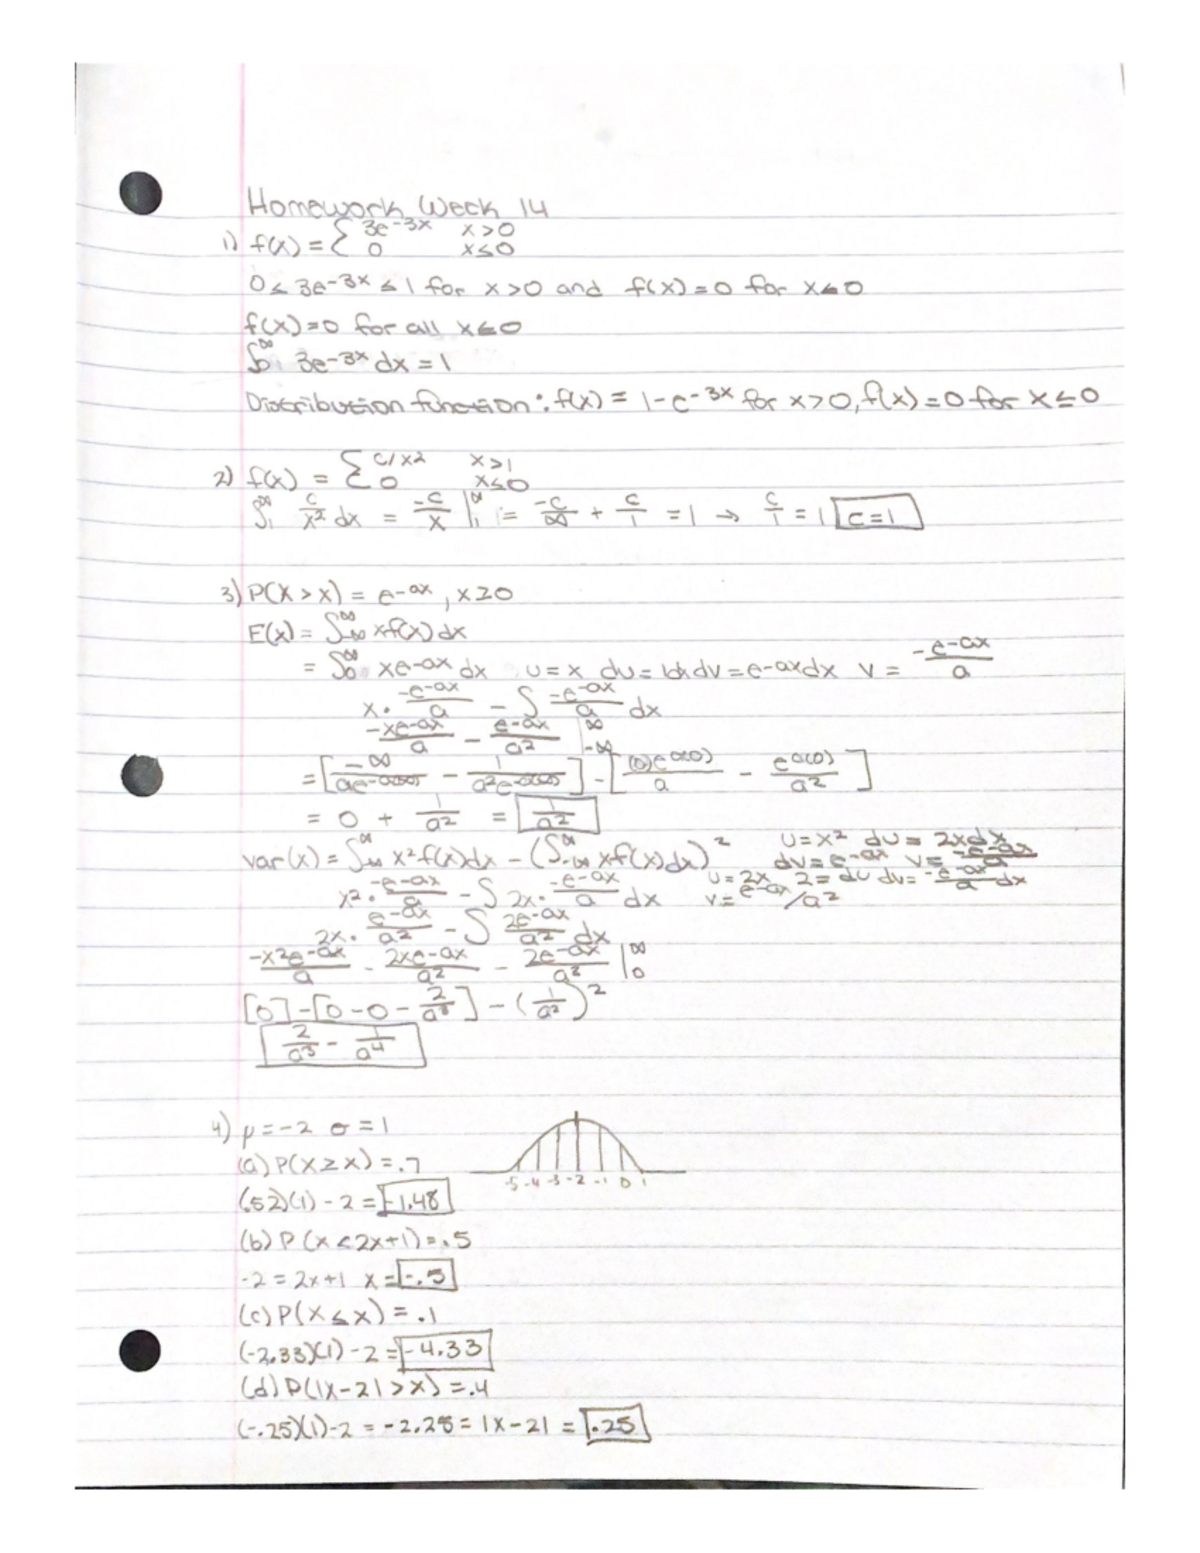 Homework Week 14
1) f(x) = { 3e^-3x x>0
0 x≤0
0 ≤ 3e^-3x ≤ 1 for x>0 and f(x)=0 for x≤0
f(x)=0 for all x≤0
∫₀^∞ 3e^-3x dx = 1
Distribution function: f(x) = 1-e^-3x for x>0, f(x)=0 for x≤0
2) f(x) = { c/x2 x>1
0 x≤0
∫₁^∞ c/x² dx = -c/x |₁^∞ = -c/∞ + c/1 = 1 → c/1 = 1 c=1
3) P(X > x) = e^-ax, x≥0
E(x) = ∫₋∞^∞ xf(x) dx
= ∫₀^∞ xe^-ax dx u=x du=1dx dv=e^-ax dx v= -e^-ax/a
x · -e^-ax/a - ∫ -e^-ax/a dx
-xe^-ax/a - e^-ax/a² |₋∞^∞
= [-∞/ae^-a(∞) - 1/a²e^-a(∞)] - [(0)e^a(0)/a - e^a(0)/a²]
= 0 + 1/a² = 1/a²
var(x) = ∫₋∞^∞ x²f(x)dx - (∫₋∞^∞ xf(x)dx)² u=x² du=2xdx
dv=e^-ax v= -e^-ax/a
x² · -e^-ax/a - ∫ 2x · -e^-ax/a dx u=2x 2=du dv= -e^-ax/a dx
v= e^-ax/a²
2x · e^-ax/a² - ∫ 2e^-ax/a² dx
-x²e^-ax/a - 2xe^-ax/a² - 2e^-ax/a³ |₀^∞
[0]-[0-0-2/a³] - (1/a²)²
2/a³ - 1/a⁴
4) μ=-2 σ=1
-5 -4 -3 -2 -1 0 1
(a) P(X≥x) = .7
(.52)(1) - 2 = -1.48
(b) P(x<2x+1) = .5
-2 = 2x+1 x = -.5
(c) P(X≤x) = .1
(-2.33)(1) - 2 = -4.33
(d) P(|X-2|>x) = .4
(-.25)(1)-2 = -2.25 = |x-2| = .25